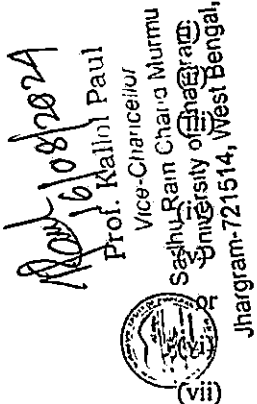 16/08/2024
Prof. Kallol Paul
Vice-Chancellor
Sadhu Ram Chand Murmu
University of Jhargram
Jhargram-721514, West Bengal,
or
(vi)
(vii)